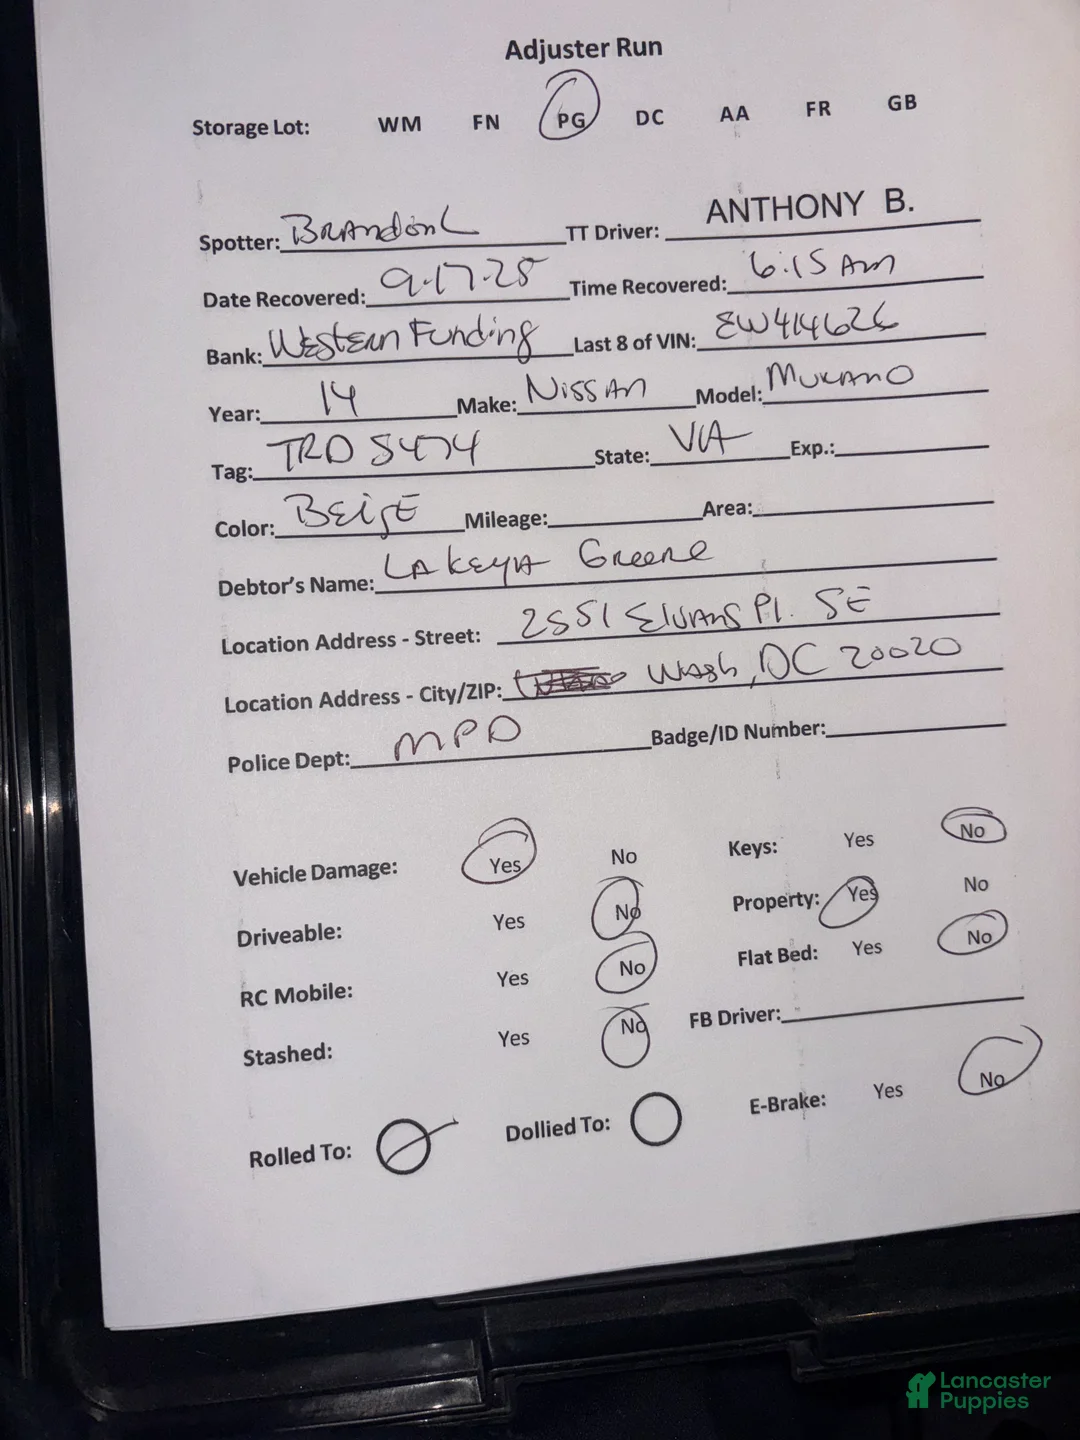 Adjuster Run
Storage Lot: WM FN PG DC AA FR GB
Spotter: BRANdonL TT Driver: ANTHONY B.
Date Recovered: 9-17-25 Time Recovered: 6:15 Am
Bank: WEstERN Funding Last 8 of VIN: EW414626
Year: 14 Make: NissAn Model: MuRAnO
Tag: TRD 5474 State: VA Exp.:
Color: BEigE Mileage: Area:
Debtor's Name: LAKEYA Greene
Location Address - Street: 2551 ElVANS Pl. SE
Location Address - City/ZIP: Wash, DC 20020
Police Dept: MPD Badge/ID Number:
Vehicle Damage: Yes No Keys: Yes No
Driveable: Yes No Property: Yes No
RC Mobile: Yes No Flat Bed: Yes No
Stashed: Yes No FB Driver:
Rolled To: Dollied To: E-Brake: Yes No
Lancaster
Puppies